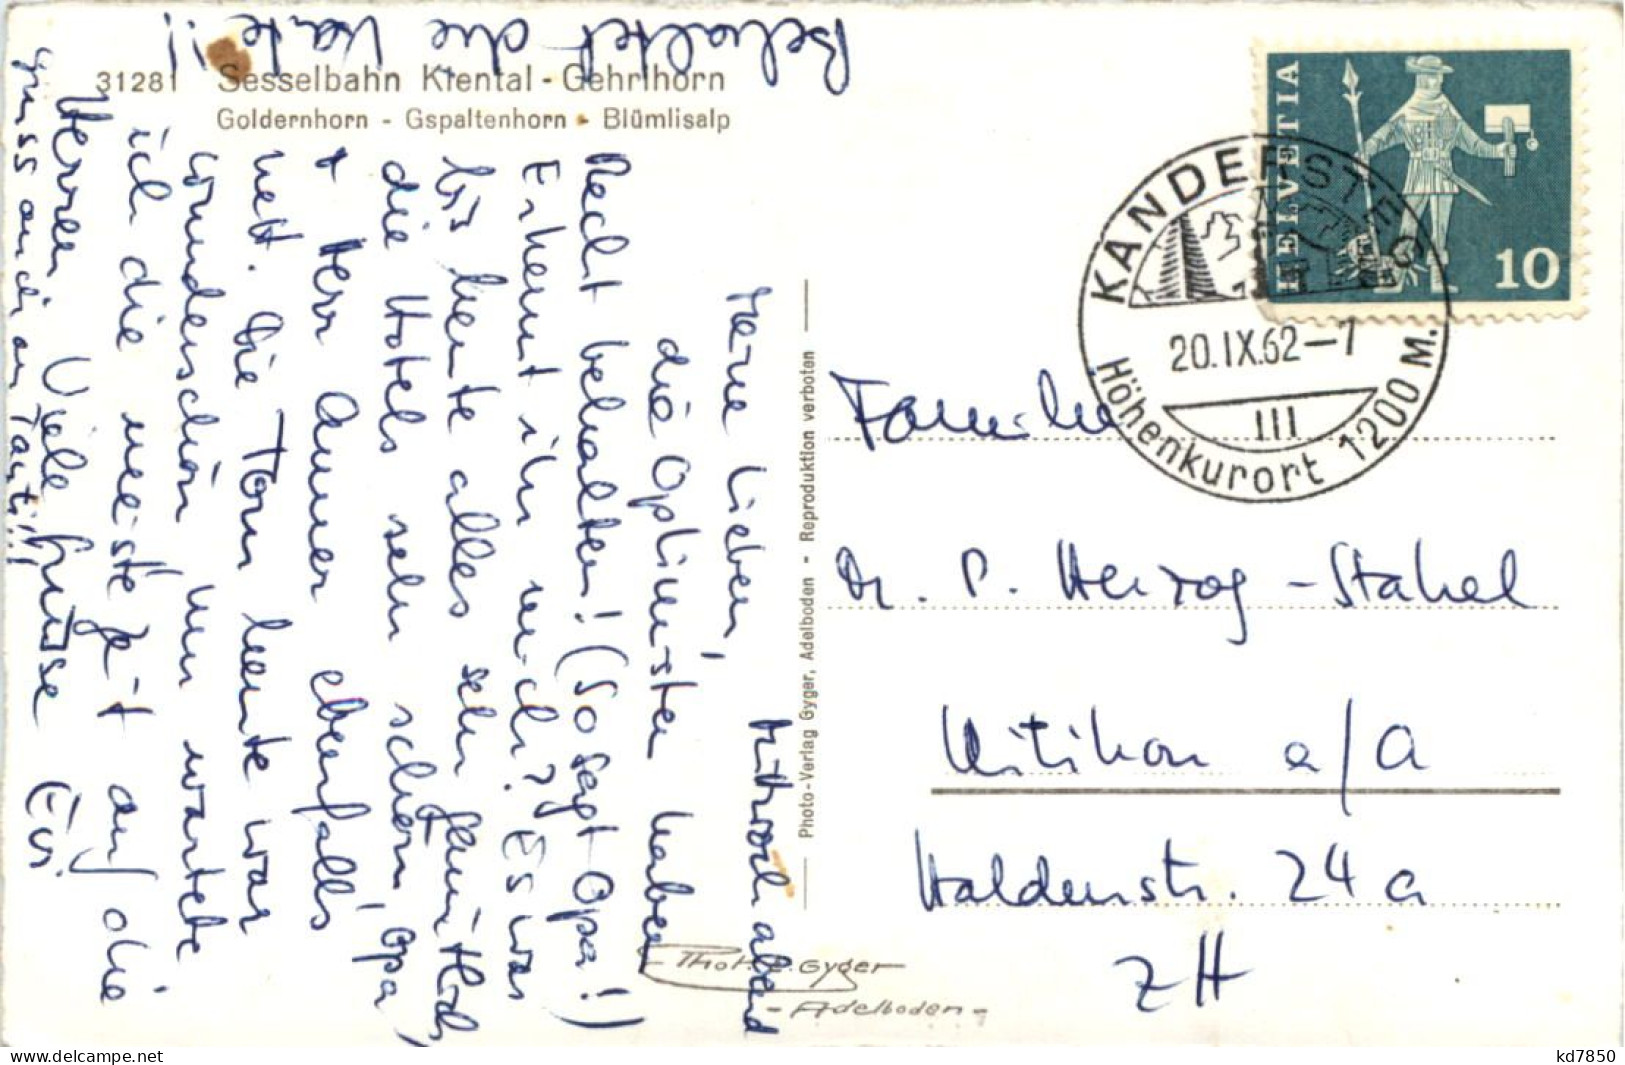 Behaltet die Karte!!
31281 Sesselbahn Kiental - Gehrihorn
Goldernhorn - Gspaltenhorn - Blümlisalp
Mittwoch abend
Meine Lieben,
die Optimisten haben
Recht behalten! (So sagt Opa!)
Erkennt ihr mich? Es war
bis heute alles sehr gemütlich,
die Hotels sehr schön, Opa
+ Herr Ammer ebenfalls
nett. Die Tour heute war
wunderschön. Nun wartete
ich die meiste Zeit auf die
Herren. Viele Grüsse Evi
Photo-Verlag Gyger, Adelboden - Reproduktion verboten
Phot. E. Gyger
- Adelboden -
HELVETIA
10
KANDERSTEG
20.IX.62-7
III
Höhenkurort 1200 M.
Familie
Dr. P. Herzog - Stahel
Uitikon a/A
Haldenstr. 24 a
ZH
kd7850